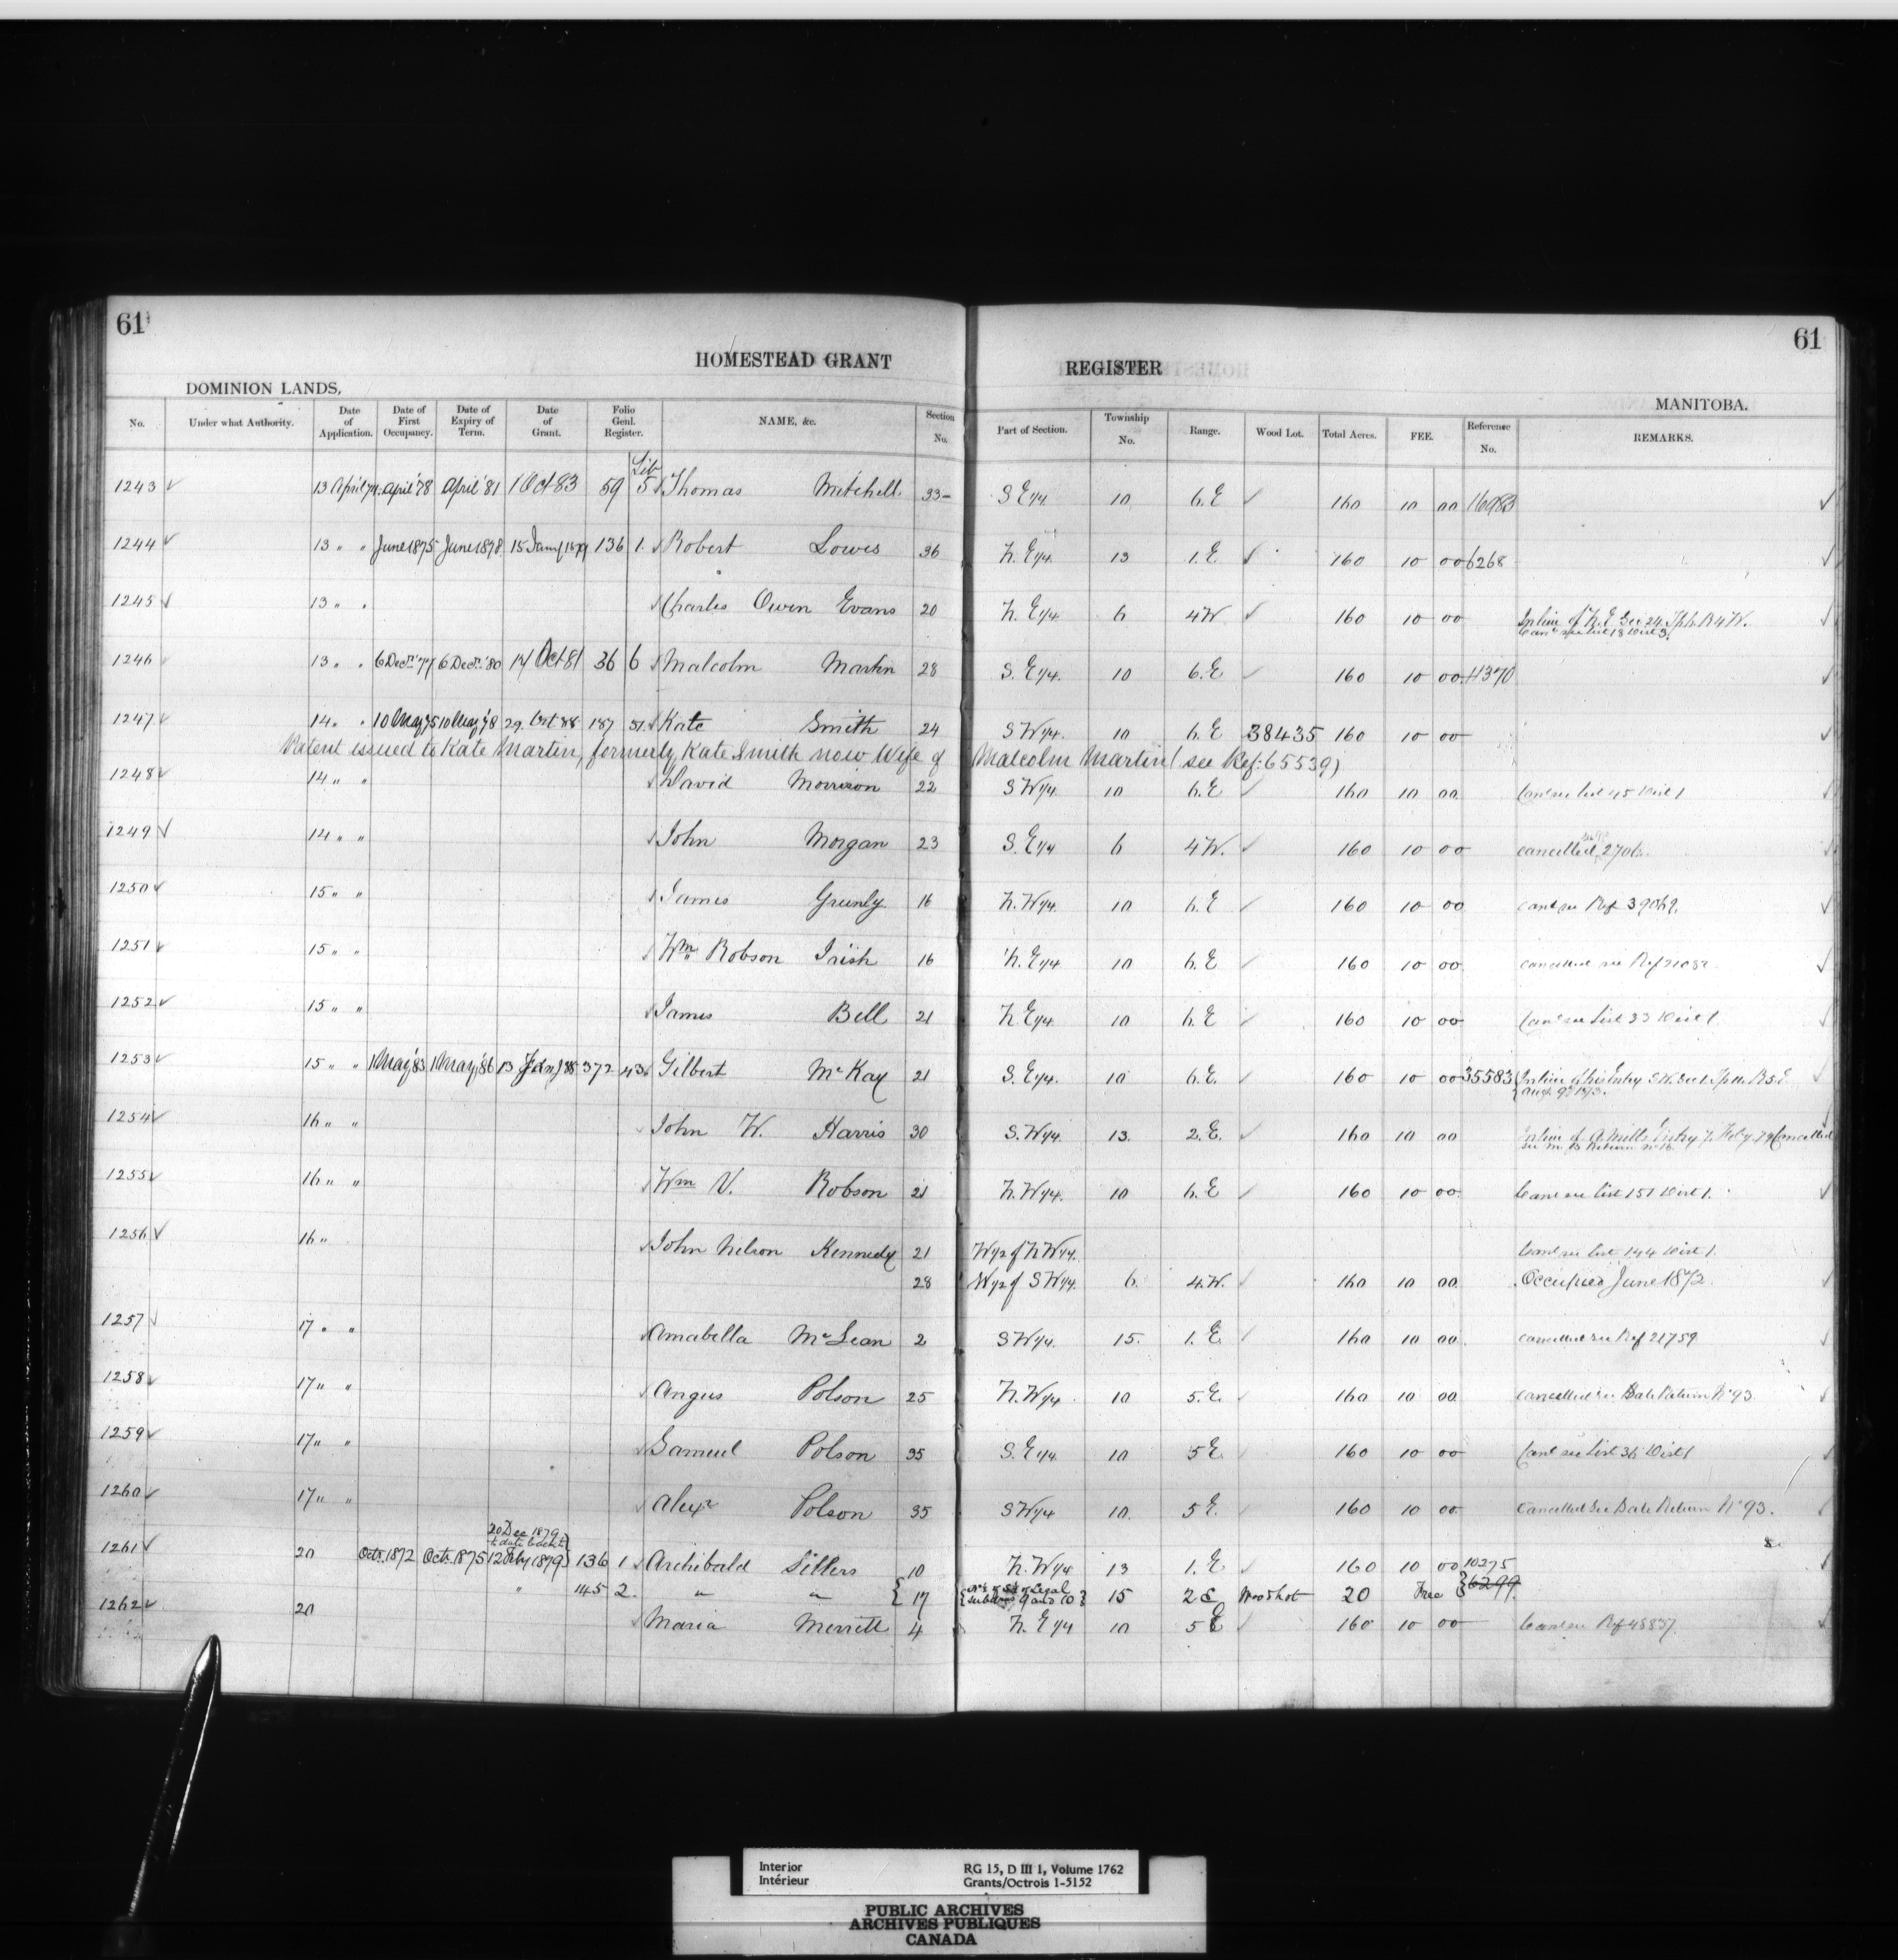 61
61
HOMESTEAD GRANT REGISTER
DOMINION LANDS, MANITOBA.
No. Under what Authority. Date of Application. Date of First Occupancy. Date of Expiry of Term. Date of Grant. Folio Genl. Register. NAME, &c. Section No. Part of Section. Township No. Range. Wood Lot. Total Acres. FEE. Reference No. REMARKS.
Lib
1243 13 April 74 April '78 April '81 1 Oct 83 59 5 Thomas Mitchell 33 S E 1/4 10 6. E 160 10 00 16983
1244 13 " " June 1875 June 1878 15 Jany 1879 136 1. Robert Lowes 36 N. E 1/4 13 1. E 160 10 00 6268
1245 13 " " Charles Owen Evans 20 N. E 1/4 6 4 W. 160 10 00 In lieu of N. E Sec 24 Tp 6 R 4 W.
Canc see list 18 Dist 3
1246 13 " " 6 Decr. '77 6 Decr. '80 14 Oct 81 36 6 Malcolm Martin 28 S. E 1/4 10 6. E 160 10 00 11370
1247 14 " " 10 May 75 10 May 78 29. Oct 88 187 51. Kate Smith 24 S W 1/4 10 6. E 38435 160 10 00
Patent issued to Kate Martin, formerly Kate Smith now Wife of Malcolm Martin (see Ref: 65539)
1248 14 " " David Morrison 22 S W 1/4 10 6. E 160 10 00 Canc see list 45 Dist 1
1249 14 " " John Morgan 23 S. E 1/4 6 4 W. 160 10 00 cancelled 2706.
1250 15 " " James Greenly 16 N. W 1/4 10 6. E 160 10 00 canc see Ref 39069.
1251 15 " " Wm Robson Irish 16 N. E 1/4 10 6. E 160 10 00 cancelled see Ref 21032
1252 15 " " James Bell 21 N. E 1/4 10 6. E 160 10 00 Canc see List 33 Dist 1
1253 15 " " 1 May '83 1 May '86 13 Jany 88 372 43 Gilbert McKay 21 S. E 1/4 10 6. E. 160 10 00 35583 In lieu of his Entry S W. Sec 1. Tp 11. R 5. E
Augt 9th 1873.
1254 16 " " John W. Harris 30 S. W 1/4 13. 2. E. 160 10 00 In lieu of A. Mills Entry 7. Feby. 79 Cancelled
1255 16 " " Wm V. Robson 21 N. W 1/4. 10 6. E 160 10 00. Canc see list 151 Dist 1.
1256 16 " John Nelson Kennedy 21 W 1/2 of N W 1/4. Canc see list 144 Dist 1.
28 W 1/2 of S W 1/4. 6. 4. W. 160 10 00 Occupied June 1872.
1257 17 " " Amabella McLean 2 S W 1/4. 15. 1. E 160 10 00. cancelled see Ref 21759
1258 17 " " Angus Polson 25 N. W 1/4 10 5. E. 160 10 00 cancelled see Sale Return No 93
1259 17 " " Samuel Polson 35 S. E 1/4 10 5 E 160 10 00 Canc see List 36 Dist 1
1260 17 " " Alexr Polson 35 S W 1/4 10. 5 E. 160 10 00. Cancelled See Sale Return No 93.
20 Dec 1879
1261 20 Octr. 1872 Octr. 1875 12 Feby 1879 136 1 Archibald Sillers 10 N. W 1/4 13 1. E 160 10 00 10275
" 145 2. " " 17 of Legal subdivns 9 and 10 15 2 E Woodlot 20 Free 6299
1262 20 Maria Merrett 4 N. E 1/4 10 5 E 160 10 00 Canc see Ref 48837
Interior
Intérieur
RG 15, D III 1, Volume 1762
Grants/Octrois 1-5152
PUBLIC ARCHIVES
ARCHIVES PUBLIQUES
CANADA